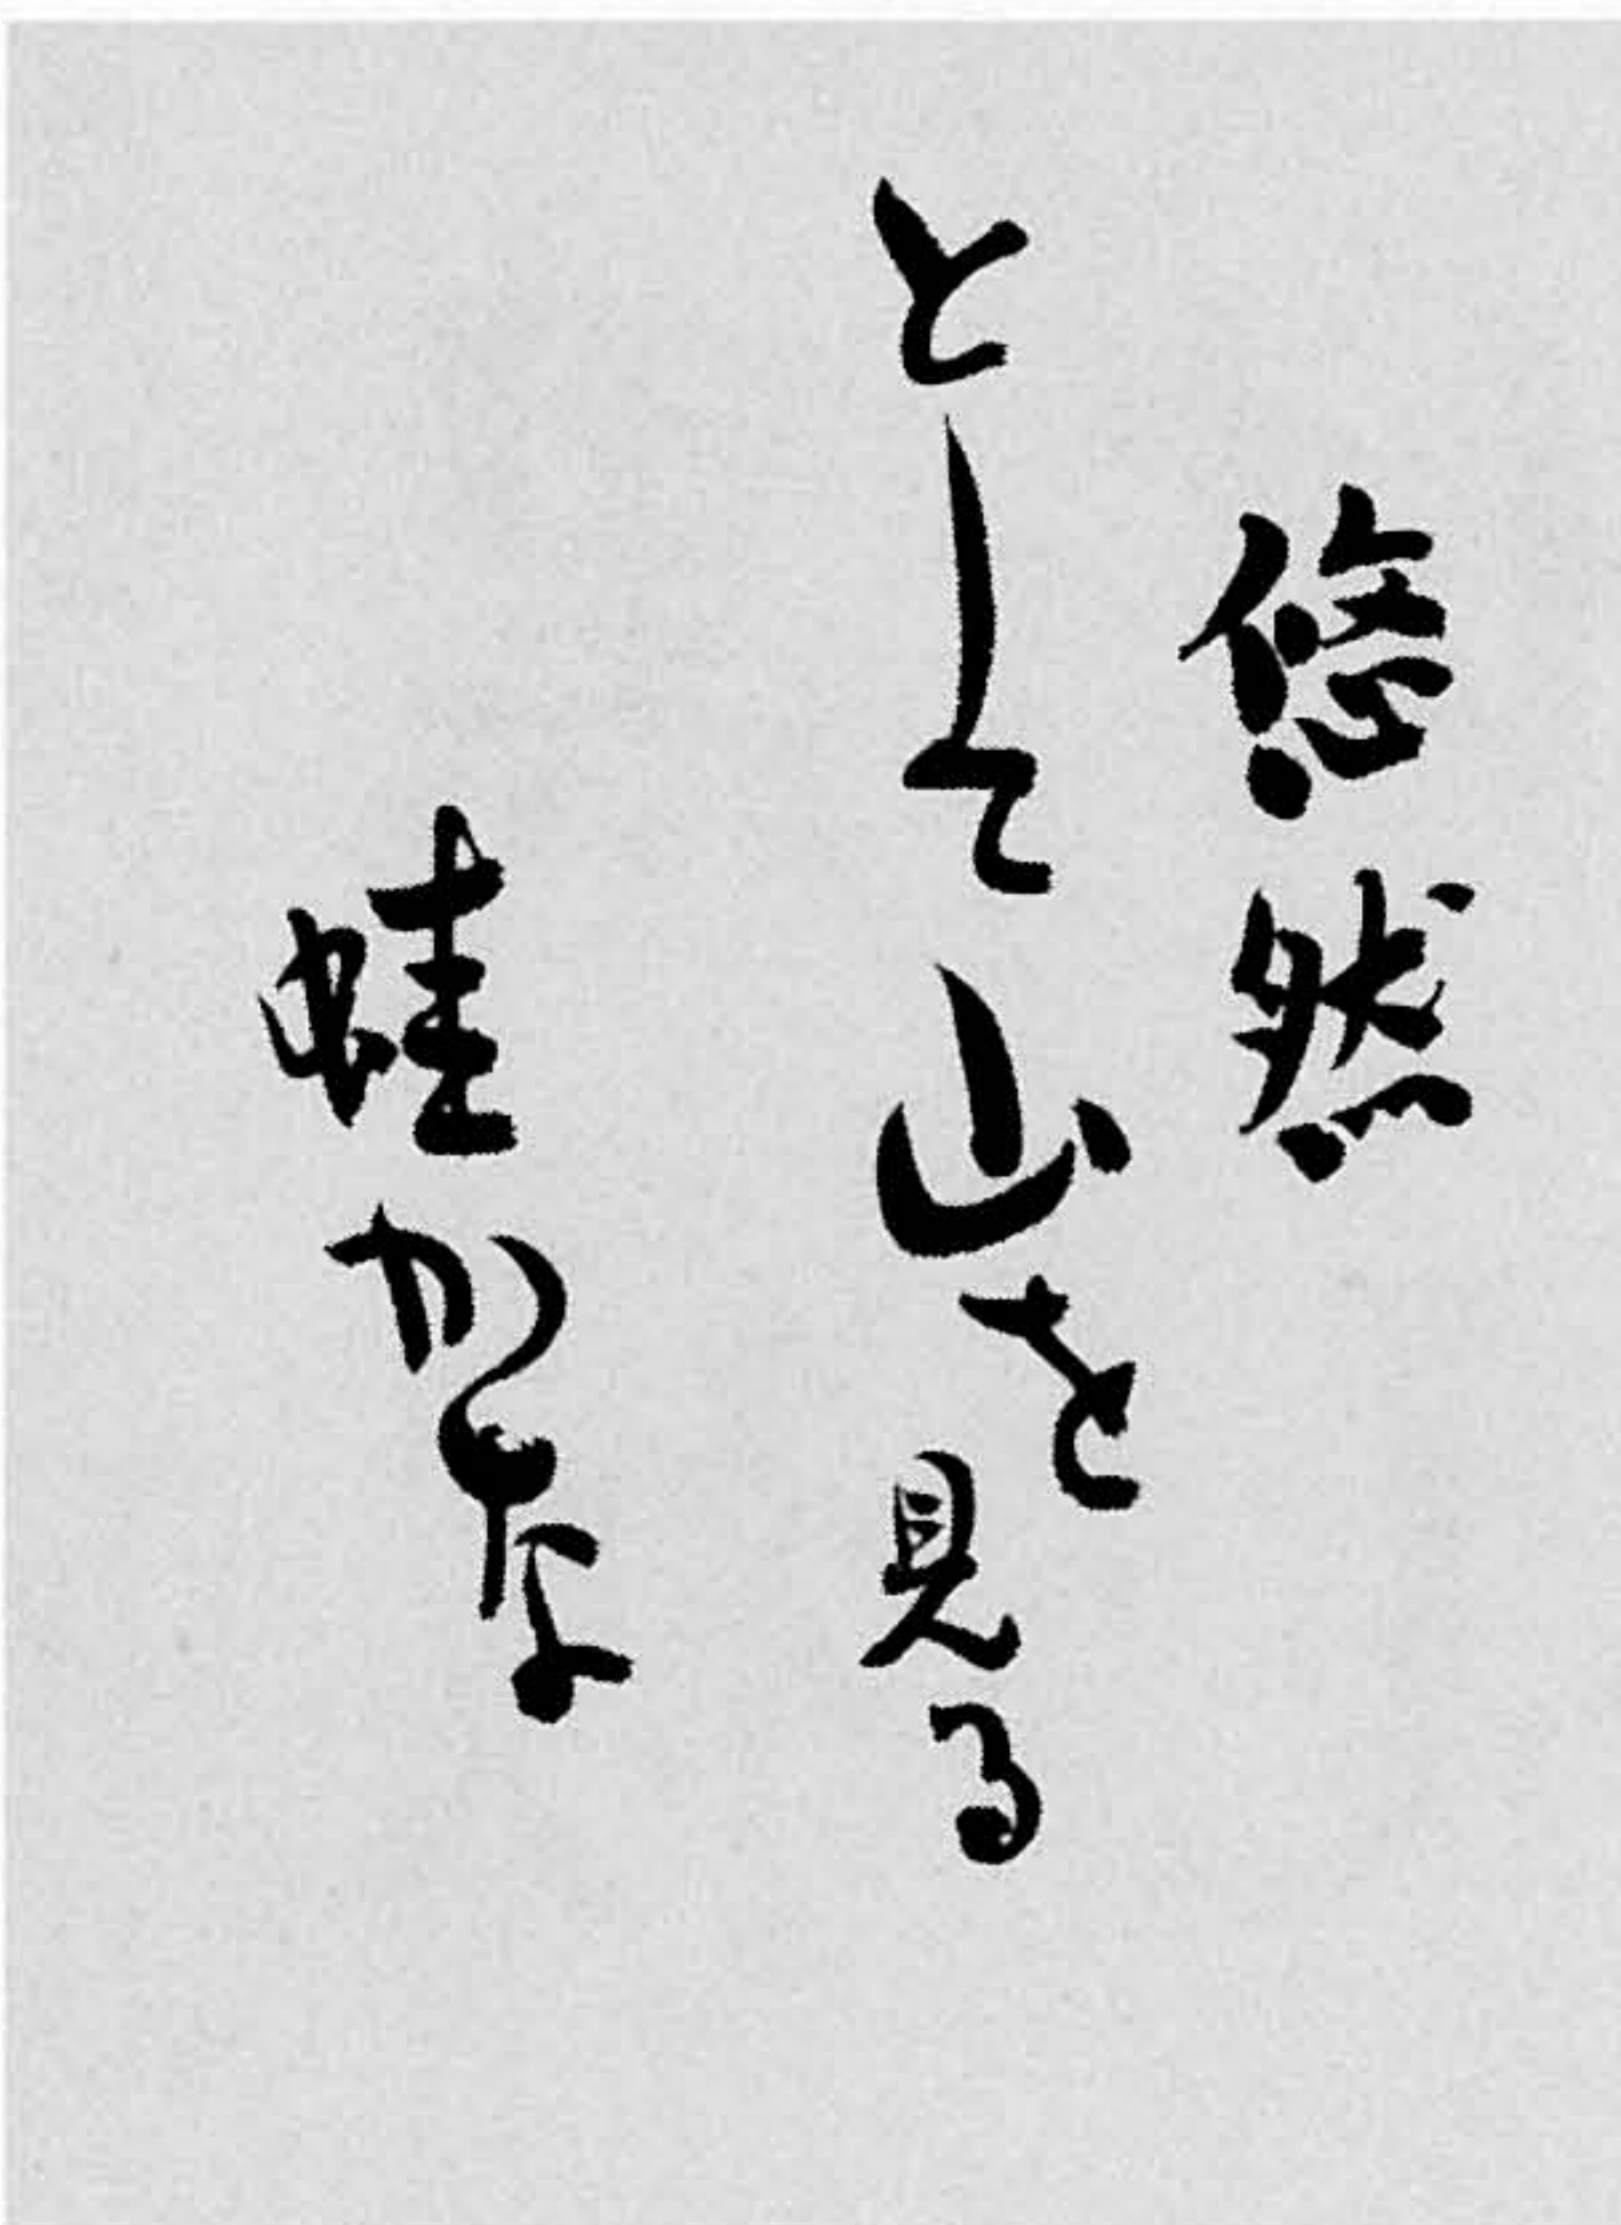 悠然
として山を見る
蛙かな